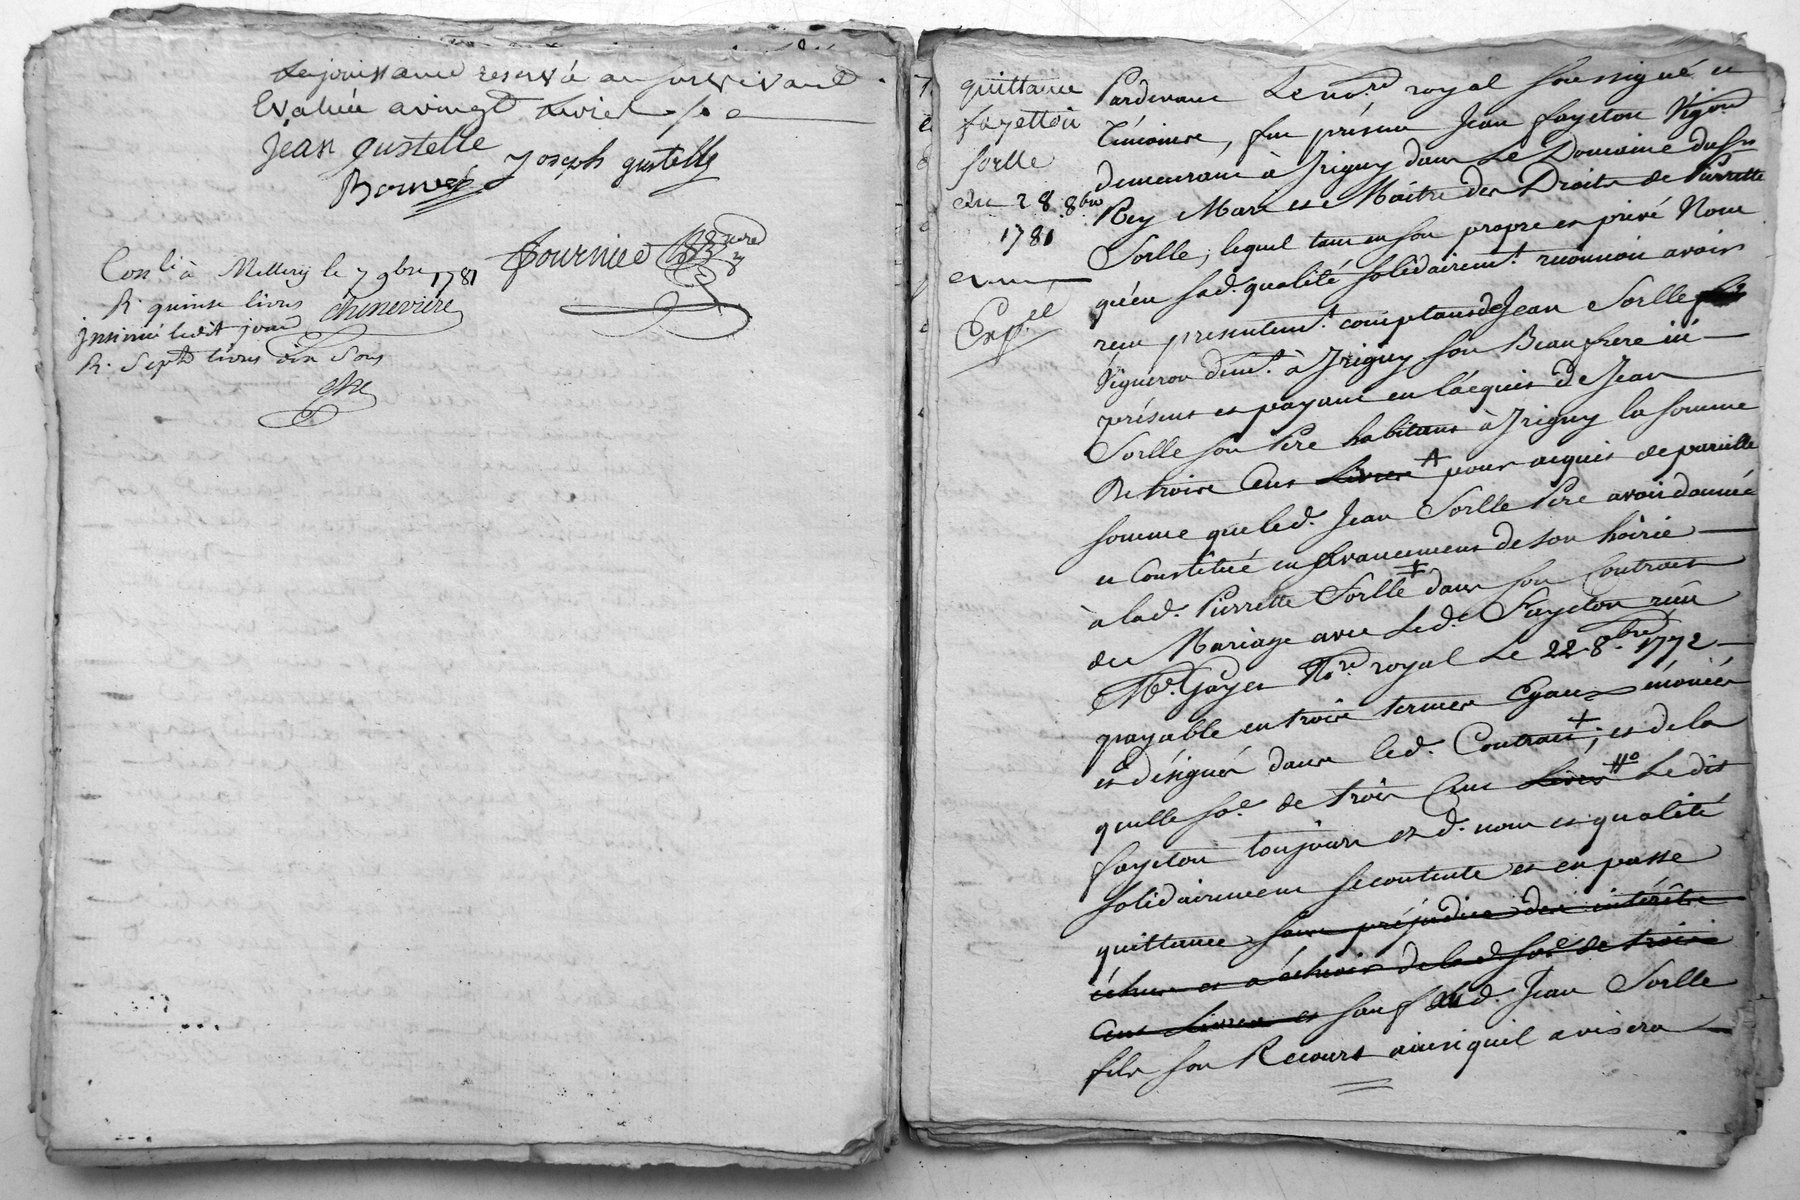 La jouissance reservé au survivant
Evaluée a vingt livres
Jean gustelle
Joseph gustelle
Fournier
Conlé à Millery le 7 9bre 1781
R. quinze livres
insinué ledit jour
Chenevière
R. Sept livres dix Sous
quittance
fayetton
Sorlle
du 28 8bre
1781
Exp.ée
Pardevant Le no.re royal Soussigné et
témoins, fut présent Jean fayeton Vigon
demeurant à Irigny dans Le Domaine du Sr
Rey Mary et Maitre des Droits de Pierrette
Sorlle, lequel tant en son propre et privé Nom
qu'en sad. qualité solidairemt. reconnoit avoir
reçu présentemt. comptant de Jean Sorlle
Vigneron demt. à Irigny son Beaufrere ici
présent et payant en l'acquit de Jean
Sorlle son Pere habitant à Irigny la somme
De trois Cens Livres pour acquit de pareille
somme que led. Jean Sorlle Pere avoit donnée
et Constitué en avancement de son hoirie
à lad. Pierrette Sorlle dans son Contrat
de Mariage avec Led. Fayeton reçu
Me. Goyet No.re royal Le 22 8.bre 1772
payable en trois termes Egaux
et désignés dans led. Contrat; et de la
quelle So.e de trois Cens Livres Ledit
fayeton toujours esd. nom et qualité
solidairement se contente et en passe
quittance sans préjudice des intérêts
échus et a échoir de lad. So.e de trois
Cens Livres et sauf aud. Jean Sorlle
fils son Recours ainsi qu'il avisera